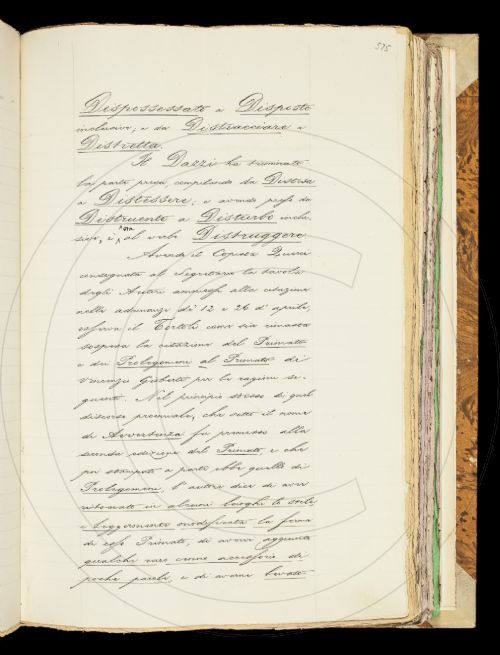 575
Dispossessato a Disposto
inclusive; e da Distracciare a
Distretta.
Il Dazzi ha terminato
la parte presa, compilando da Distesa
a Distessere; e avendo preso da
Distruente a Disturbo inclu-
sive, è ora al verbo Distruggere
Avendo il Copista Queri
consegnata al Segretario la tavola
degli Autori ammessi alla citazione
nelle adunanze di 12 e 26 d'aprile,
osserva il Tortoli come sia rimasta
sospesa la citazione del Primato
e dei Prolegomeni al Primato di
Vincenzo Gioberti per le ragioni se-
guenti. Nel principio stesso di quel
discorso proemiale, che sotto il nome
di Avvertenza fu premesso alla
seconda edizione del Primato, e che
poi stampato a parte ebbe quello di
Prolegomeni, l'autore dice di aver
ritoccato in alcuni luoghi lo stile,
e leggermente modificata la forma
di esso Primato, di avervi aggiunto
qualche cosa come accessorio di
poche parole, e di averne levato